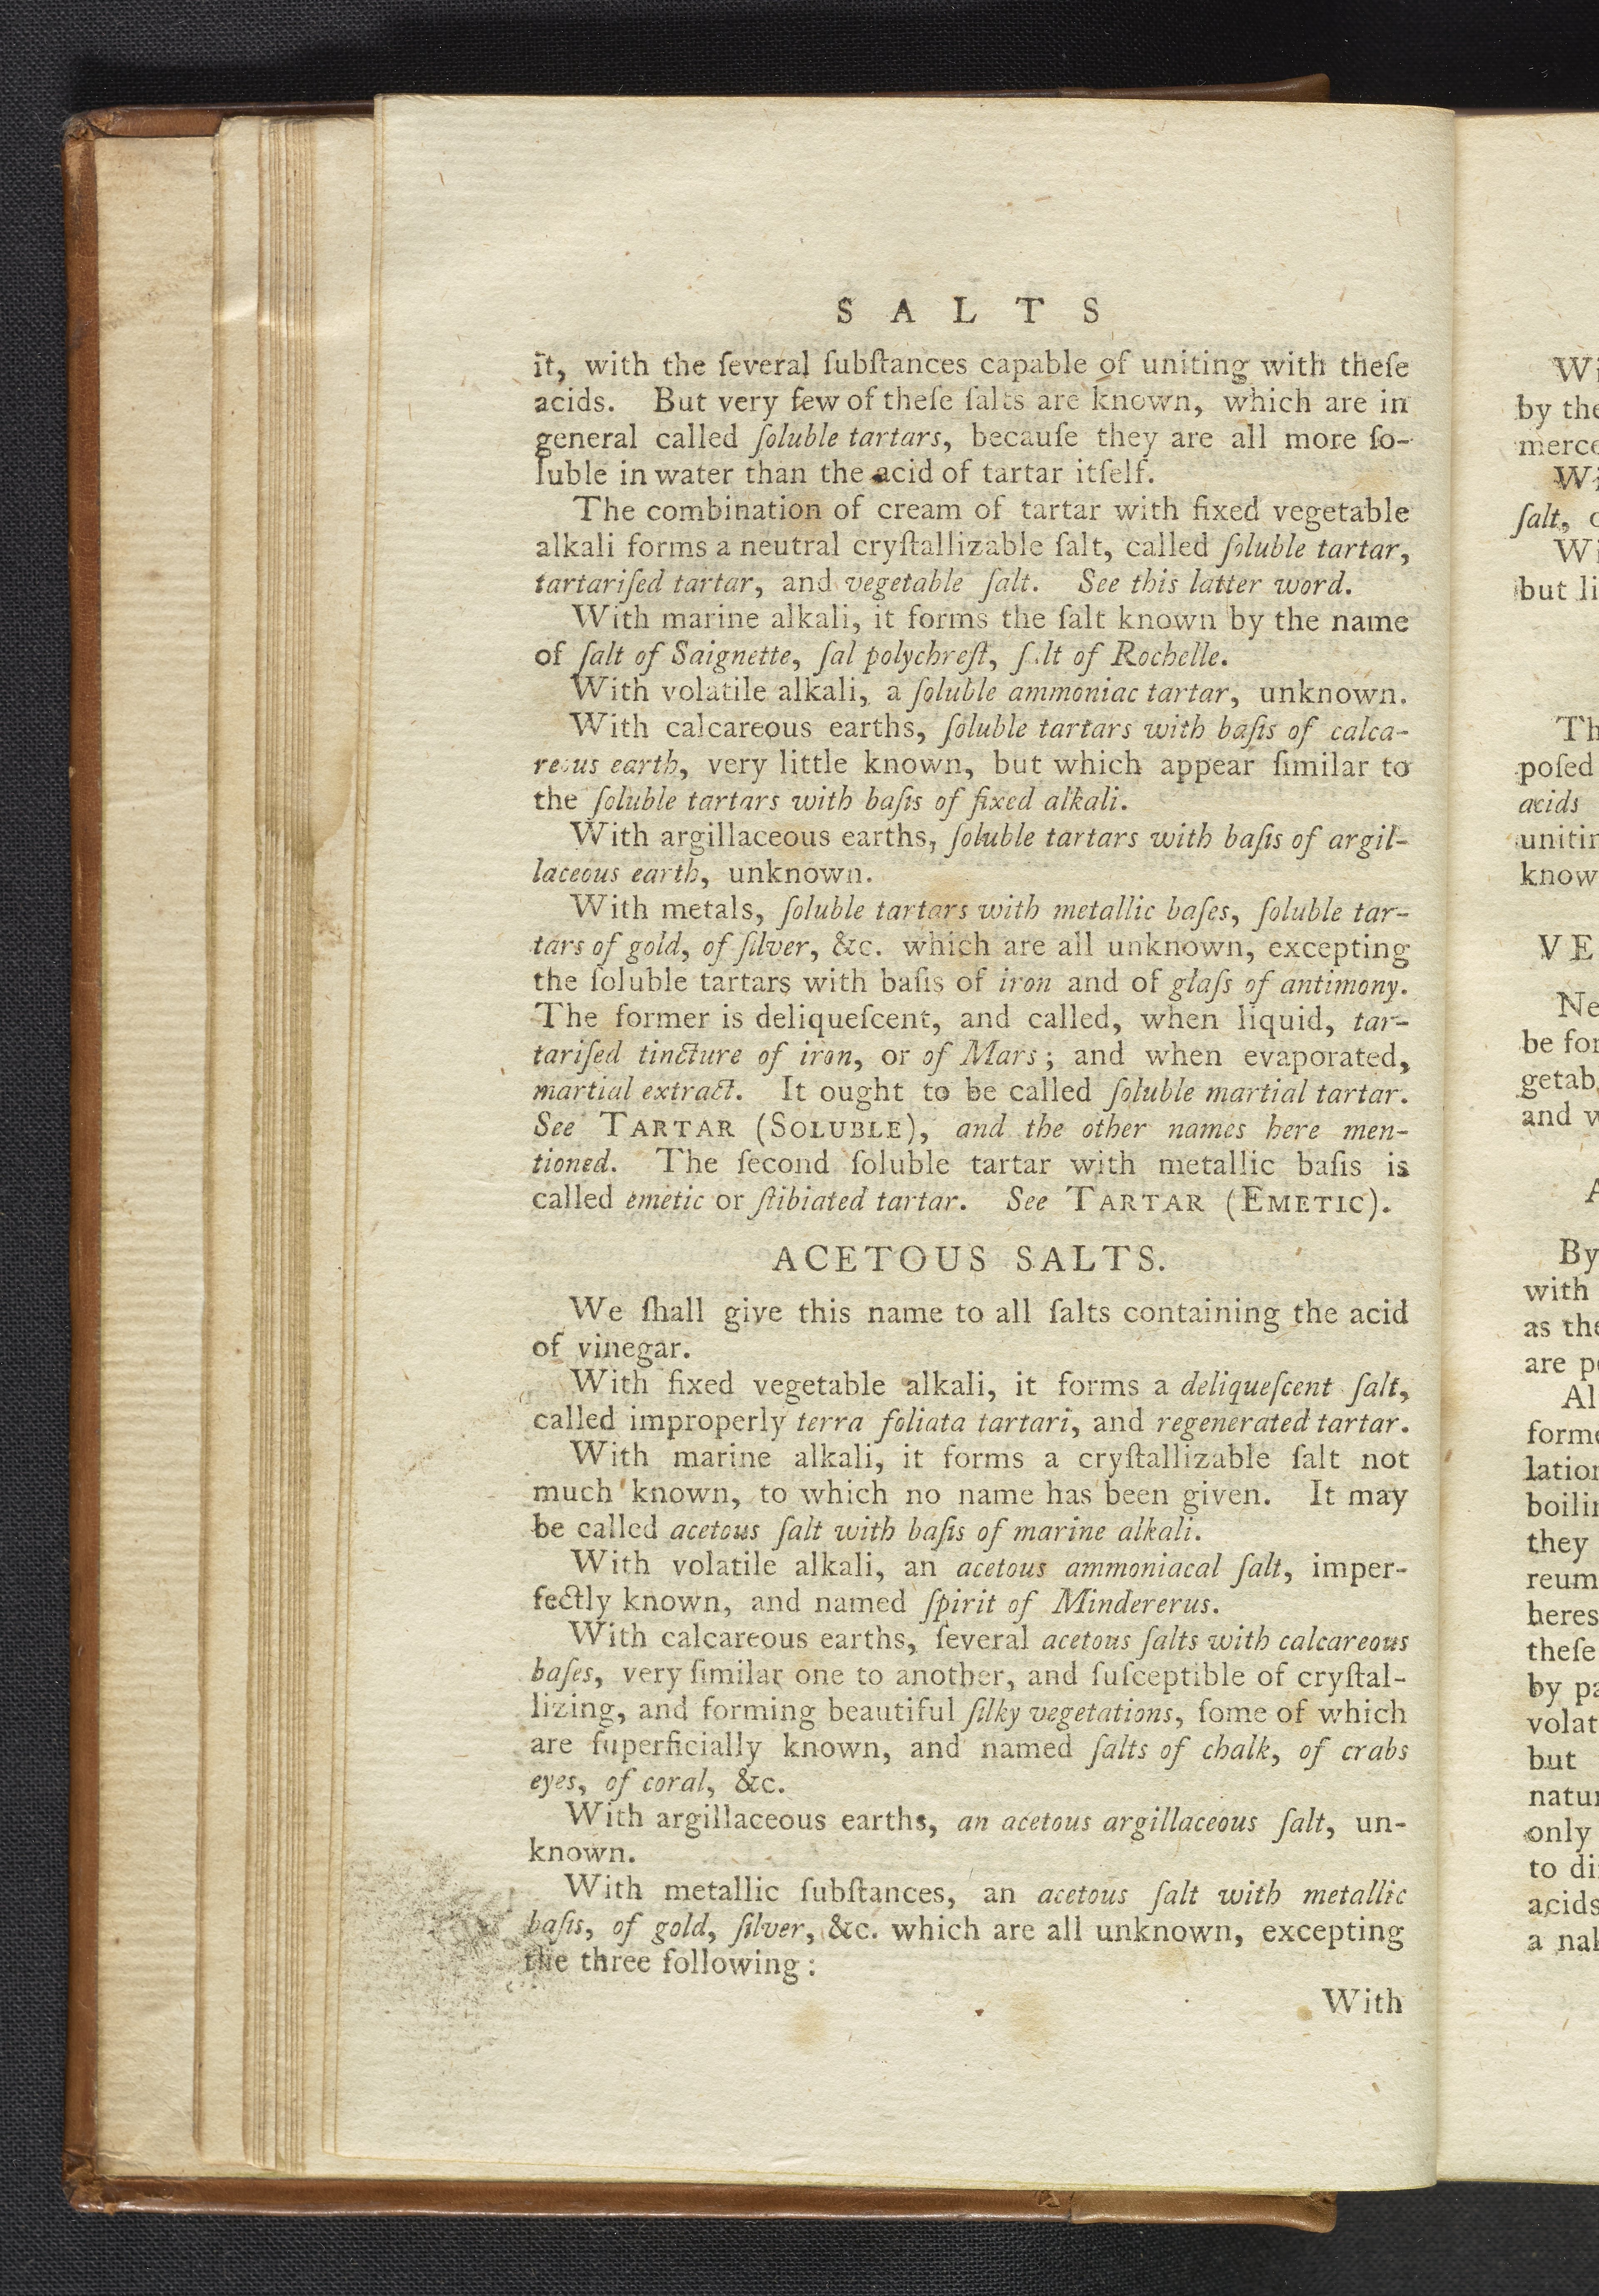 S A L T S
it, with the ſeveral ſubſtances capable of uniting with theſe
acids. But very few of theſe ſalts are known, which are in
general called ſoluble tartars, becauſe they are all more ſo-
luble in water than the acid of tartar itſelf.
The combination of cream of tartar with fixed vegetable
alkali forms a neutral cryſtallizable ſalt, called ſoluble tartar,
tartariſed tartar, and vegetable ſalt. See this latter word.
With marine alkali, it forms the ſalt known by the name
of ſalt of Saignette, ſal polychreſt, ſalt of Rochelle.
With volatile alkali, a ſoluble ammoniac tartar, unknown.
With calcareous earths, ſoluble tartars with baſis of calca-
reous earth, very little known, but which appear ſimilar to
the ſoluble tartars with baſis of fixed alkali.
With argillaceous earths, ſoluble tartars with baſis of argil-
laceous earth, unknown.
With metals, ſoluble tartars with metallic baſes, ſoluble tar-
tars of gold, of ſilver, &c. which are all unknown, excepting
the ſoluble tartars with baſis of iron and of glaſs of antimony.
The former is deliqueſcent, and called, when liquid, tar-
tariſed tincture of iron, or of Mars; and when evaporated,
martial extract. It ought to be called ſoluble martial tartar.
See TARTAR (SOLUBLE), and the other names here men-
tioned. The ſecond ſoluble tartar with metallic baſis is
called emetic or ſtibiated tartar. See TARTAR (EMETIC).
ACETOUS SALTS.
We ſhall give this name to all ſalts containing the acid
of vinegar.
With fixed vegetable alkali, it forms a deliqueſcent ſalt,
called improperly terra foliata tartari, and regenerated tartar.
With marine alkali, it forms a cryſtallizable ſalt not
much known, to which no name has been given. It may
be called acetous ſalt with baſis of marine alkali.
With volatile alkali, an acetous ammoniacal ſalt, imper-
fectly known, and named ſpirit of Mindererus.
With calcareous earths, ſeveral acetous ſalts with calcareous
baſes, very ſimilar one to another, and ſuſceptible of cryſtal-
lizing, and forming beautiful ſilky vegetations, ſome of which
are ſuperficially known, and named ſalts of chalk, of crabs
eyes, of coral, &c.
With argillaceous earths, an acetous argillaceous ſalt, un-
known.
With metallic ſubſtances, an acetous ſalt with metallic
baſis, of gold, ſilver, &c. which are all unknown, excepting
the three following:
With
by the
ſalt,
but
poſed
acids
know
VE
and
By
with
as
are
they
theſe
by
but
only
to
acids
a